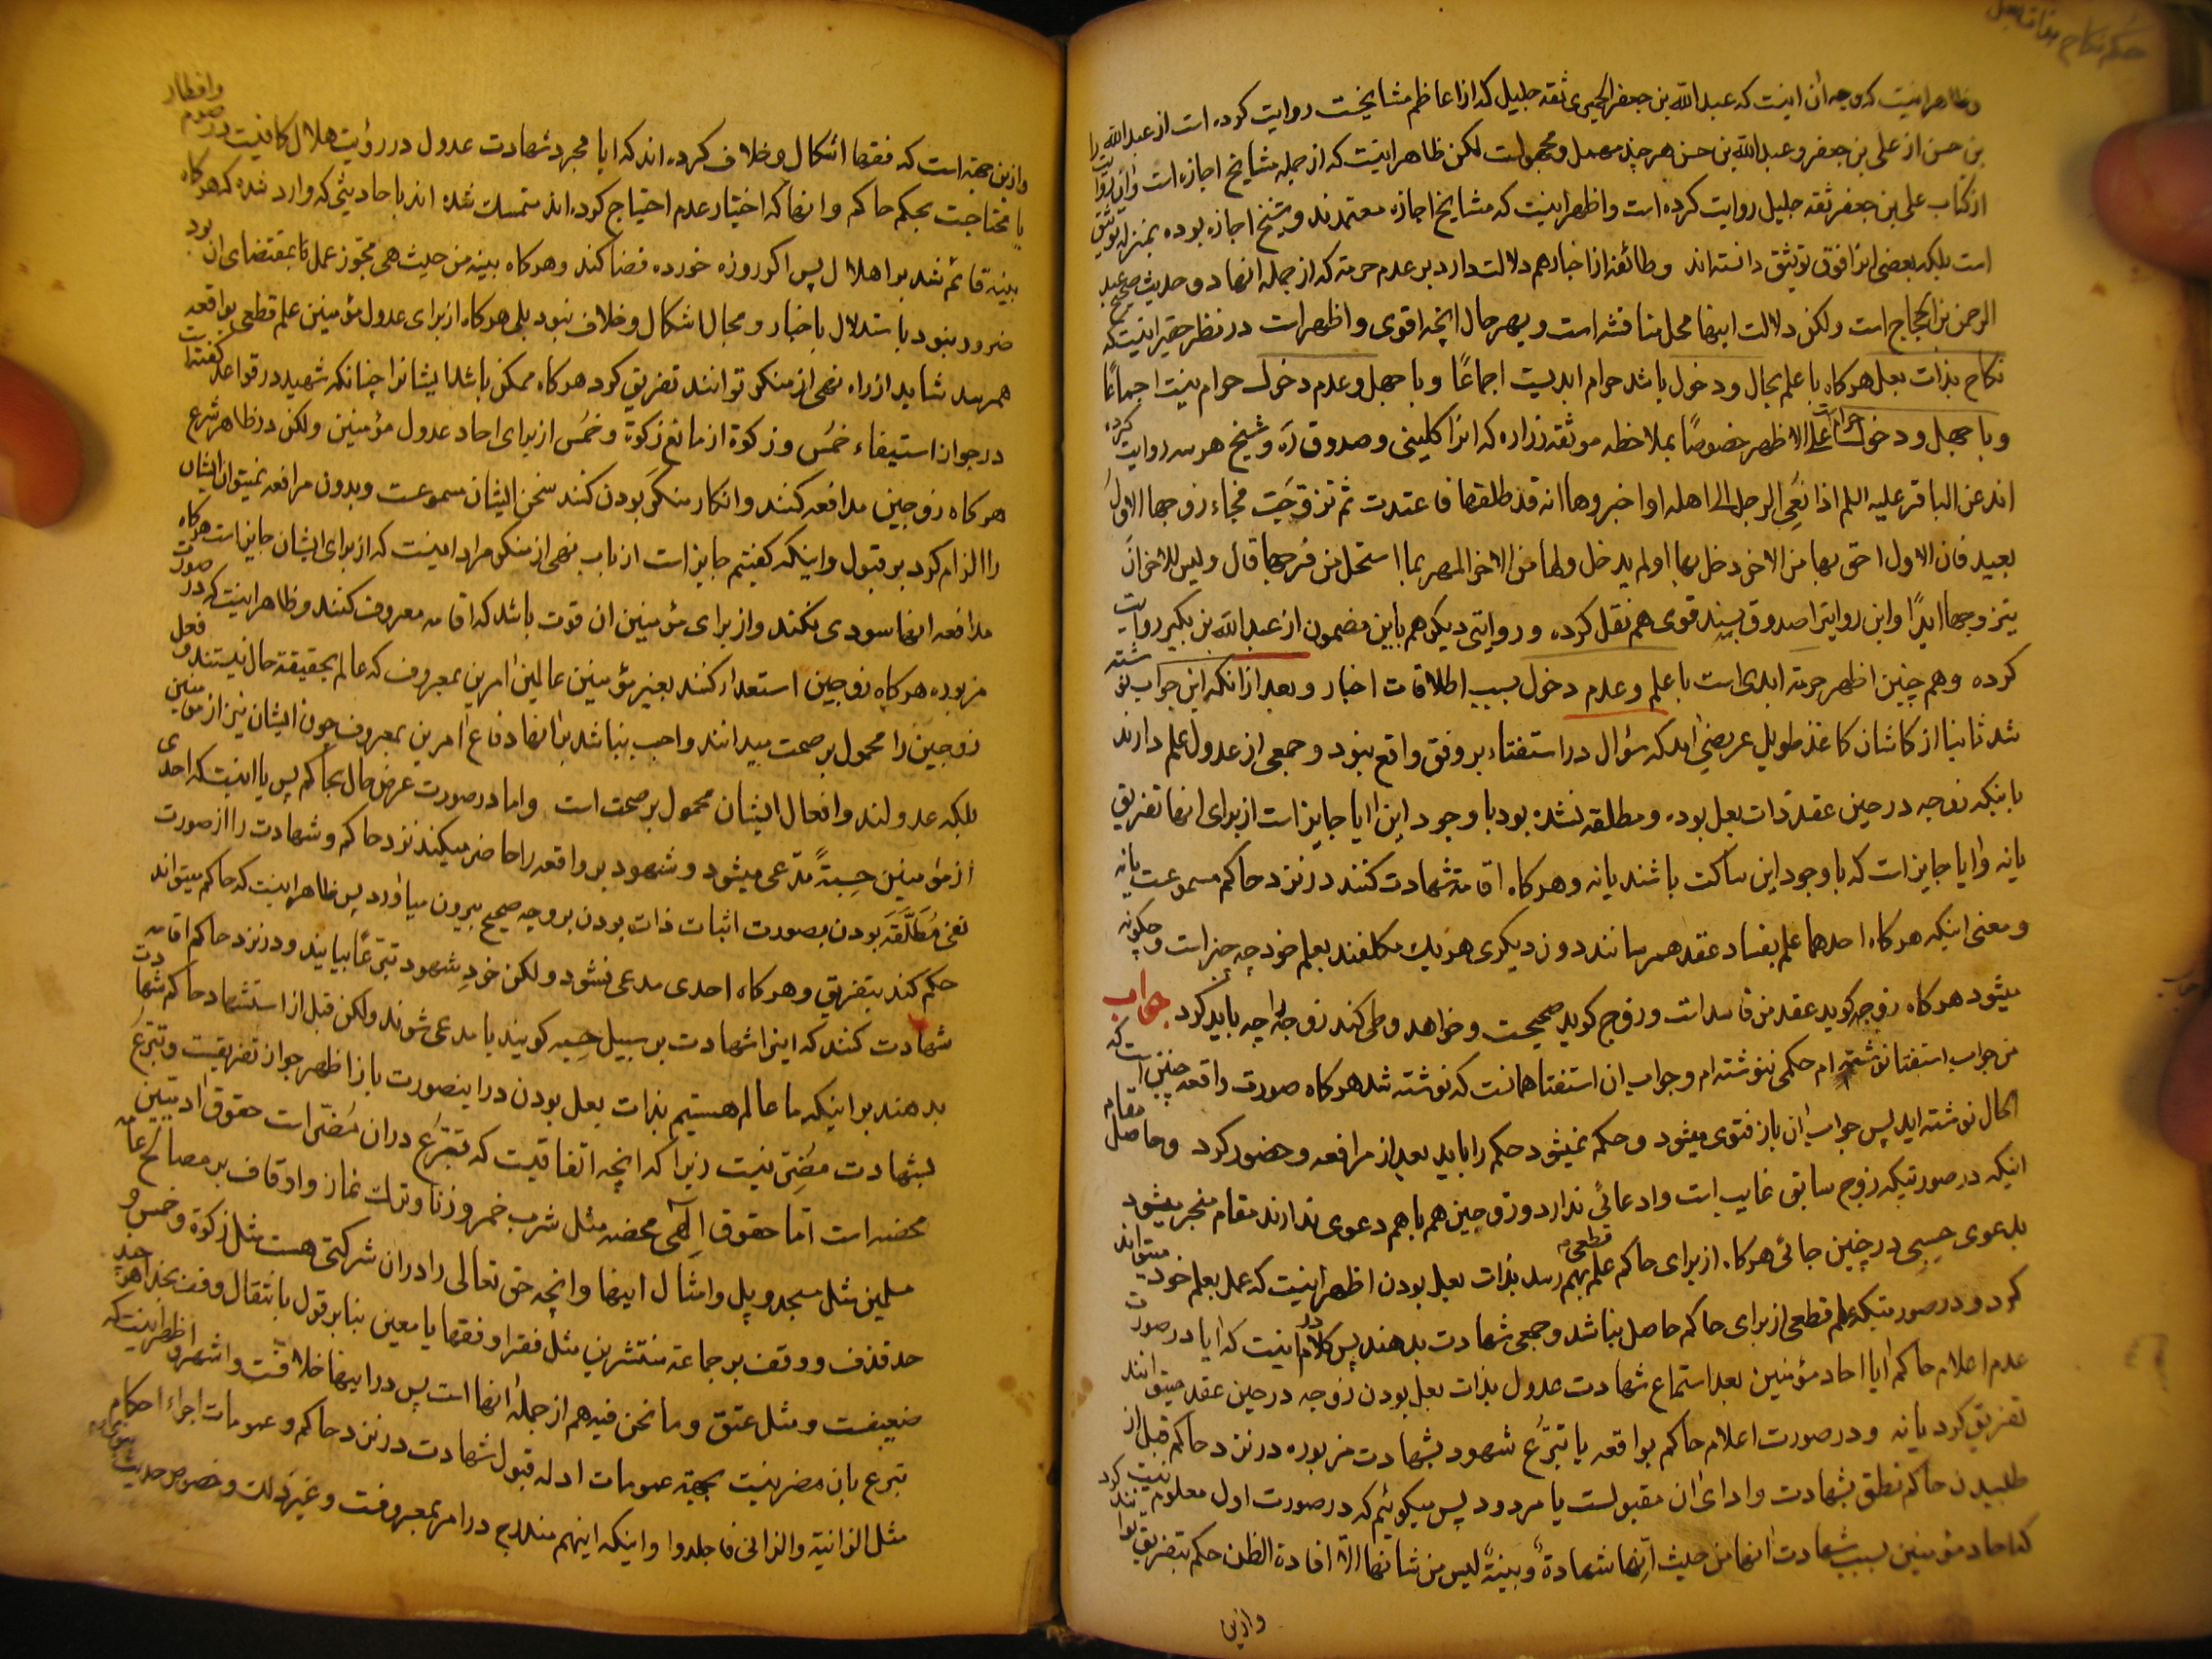 حکم نکاح
و ظاهر اینست که وجه آن اینست که عبد الله بن جعفر الحمیری ثقه جلیل که از اعاظم مشایخست روایت کرده است از عبد الله را
بن حسن از علی بن جعفر و عبد الله بن حسن هر چند مهمل و مجهولست لکن ظاهر اینست که از جمله مشایخ اجازه است و این روایت
از کتاب علی بن جعفر ثقه جلیل روایت کرده است و اظهر اینست که مشایخ اجازه معتمدند و شیخ اجازه بوده بمنزله توثیق
است بلکه بعضی انرا فوق توثیق دانسته اند و طائفه از اخبار هم دلالت دارد بر عدم حرمة که از جمله انها دو حدیث صحیح عبد
الرحمن بن الحجاج است ولکن دلالت اینها محل مناقشه است و بهر حال انچه اقوی و اظهر است در نظر حقیر اینست که
نکاح بذات بعل هرکاه با علم بحال و دخول باشد حرام ابدیست اجماعًا و با جهل و عدم دخول حرام نیست اجماعًا
و با جهل و دخول حرام است علی الاظهر خصوصًا بملاحظه موثقه زراره که انرا کلینی و صدوق ره و شیخ هر سه روایت کرده
اند عن الباقر علیه السلم اذا نعی الرجل الی اهله او اخبروها انه قد طلقها فاعتدت ثم تزوجت فجاء زوجها الاول
بعید فان الاول احق بها من الاخر دخل بها او لم یدخل ولها من الاخر المهر بما استحل من فرجها قال ولیس للاخر ان
یتزوجها ابدًا و این روایترا صدوق بسند قوی هم نقل کرده و روایتی دیکر هم باین مضمون از عبد الله بن بکیر روایت
کرده و هم چنین اظهر حرمة ابدی است با علم و عدم دخول بسبب اطلاقات اخبار و بعد از انکه این جواب نوشته
شد ثانیا از کاشان کاغذ طویل عریضی امد که سؤال در استفتاء بر وفق واقع نبود و جمعی از عدول علم دارند
باینکه زوجه در حین عقد ذات بعل بوده و مطلقه نشده بود با وجود این ایا جایز است از برای انها تفریق
یا نه و ایا جایز است که با وجود این ساکت باشند یا نه و هرکاه اقامة شهادت کنند در نزد حاکم مسموعست یا نه
و معنی اینکه هرکاه احدهما علم بفساد عقد همرسانند دون دیکری هر یک مکلفند بعلم خود چه چیز است و چکونه
میشود هرکاه زوجه کوید عقد من فاسد است و زوج کوید صحیحست و خواهد وطی کند زوجه را چه باید کرد جواب
من جواب استفتا نوشته ام حکمی ننوشته ام و جواب ان استفتا همانست که نوشته شد هرکاه صورت واقعه چنین است که
الحال نوشته اید پس جواب ان باز فتوی میشود و حکم نمیشود حکم را باید بعد از مرافعه و حضور کرد و حاصل مقام
اینکه در صورتیکه زوج سابق غایب است و ادعائی ندارد و زوجین هم با هم دعوی ندارند مقام منجر میشود
بدعوی حسبی در چنین جائی هرکاه از برای حاکم علم قطعی بهم رسد بذات بعل بودن اظهر اینست که عمل بعلم خود میتواند
کرد و در صورتیکه علم قطعی از برای حاکم حاصل نباشد و جمعی شهادت بدهند پس کلام در اینست که ایا در صورت
عدم اعلام حاکم ایا احاد مؤمنین بعد استماع شهادت عدول بذات بعل بودن زوجه در حین عقد میتوانند
تفریق کرد یا نه و در صورت اعلام حاکم بواقعه یا تبرّع شهود بشهادت مزبوره در نزد حاکم قبل از
طلبیدن حاکم نطق بشهادت و ادای ان مقبولست یا مردود پس میکوئیم که در صورت اول معلوم نیست
که احاد مؤمنین بسبب شهادت انها من حیث انها شهادة و بینة لیس من شانها الا افادة الظن حکم بتفریق توانند کرد
و ازین
و ازین جهة است که فقها اشکال و خلاف کرده اند که ایا مجرد شهادت عدول در رؤیت هلال کافیست در صوم و افطار
یا محتاجست بحکم حاکم و انها که اختیار عدم احتیاج کرده اند متمسک شده اند باحادیثی که وارد شده که هرکاه
بینه قائم شد بر اهلال پس اکر روزه خورده قضا کند و هرکاه بینه من حیث هی مجوز عمل بمقتضای ان بود
ضرور نبود باستدلال باخبار و مجال اشکال و خلاف نبود بلی هرکاه از برای عدول مؤمنین علم قطعی بواقعه
همرسد شاید از راه نهی از منکر توانند تفریق کرد هرکاه ممکن باشد ایشانرا چنانکه شهید در قواعد کفته است
در جواز استیفاء خمس و زکوة از مانع زکوة و خمس از برای احاد عدول مؤمنین ولکن در ظاهر شرع
هرکاه زوجین مدافعه کنند و انکار منکر بودن کنند سخن ایشان مسموعست و بدون مرافعه نمیتوان ایشان
را الزام کرد بر قبول و اینکه کفتیم جایز است از باب نهی از منکر مراد اینست که از برای ایشان جایز است هرکاه
مدافعه انها سودی نکند و از برای مؤمنین ان قوت باشد که اقامه معروف کنند و ظاهر اینست که در صورت
مزبوره هرکاه زوجین استعداد کنند بغیر مؤمنین عالمین امرین بمعروف که عالم بحقیقة حال نیستند و فعل
زوجین را محمول بر صحت میدانند واجب نباشد بر انها دفاع امرین بمعروف چون ایشان نیز از مؤمنین
بلکه عدولند و افعال ایشان محمول بر صحت است و اما در صورت عرض حال بحاکم پس یا اینست که احدی
از مؤمنین حسبةً مدعی میشود و شهود بر واقعه را حاضر میکند نزد حاکم و شهادت را از صورت
نفی مطلّقه بودن بصورت اثبات ذات بودن بر وجه صحیح بیرون میاورد پس ظاهر اینست که حاکم میتواند
حکم کند بتفریق و هرکاه احدی مدعی نشود ولکن خود شهود تبرّعًا بیایند و در نزد حاکم اقامه
شهادت کنند که اینرا شهادت بر سبیل حسبه کویند یا مدعی شوند ولکن قبل از استشهاد حاکم شهادت
بدهند بر اینکه ما عالم هستیم بذات بعل بودن در اینصورت باز اظهر جواز تفریقست و تبرّع
بشهادت مضر نیست زیرا که انچه اتفاقیست که تبرّع در ان مضر است حقوق ادمیین
محضه است اما حقوق الهی محضه مثل شرب خمر و زنا و ترک نماز و اوقاف بر مصالح عامه
مسلمین مثل مسجد و پل و امثال اینها و انچه حق تعالی را در ان شرکتی هست مثل زکوة و خمس و
حد قذف و وقف بر جماعة منتشرین مثل فقرا و فقها یا معین بنا بر قول بانتقال وقف بخدا هر چند
ضعیفست و مثل عتق و ما نحن فیه هم از جمله انها است پس در اینها خلافست و اشهر و اظهر اینست که
تبرع بان مضر نیست بجهة عمومات ادله قبول شهادت در نزد حاکم و عمومات اجراء احکام
مثل الزانیة و الزانی فاجلدوا و اینکه اینهم مندرج در امر بمعروفست و غیر ذلک و خصوص حدیث نبوی